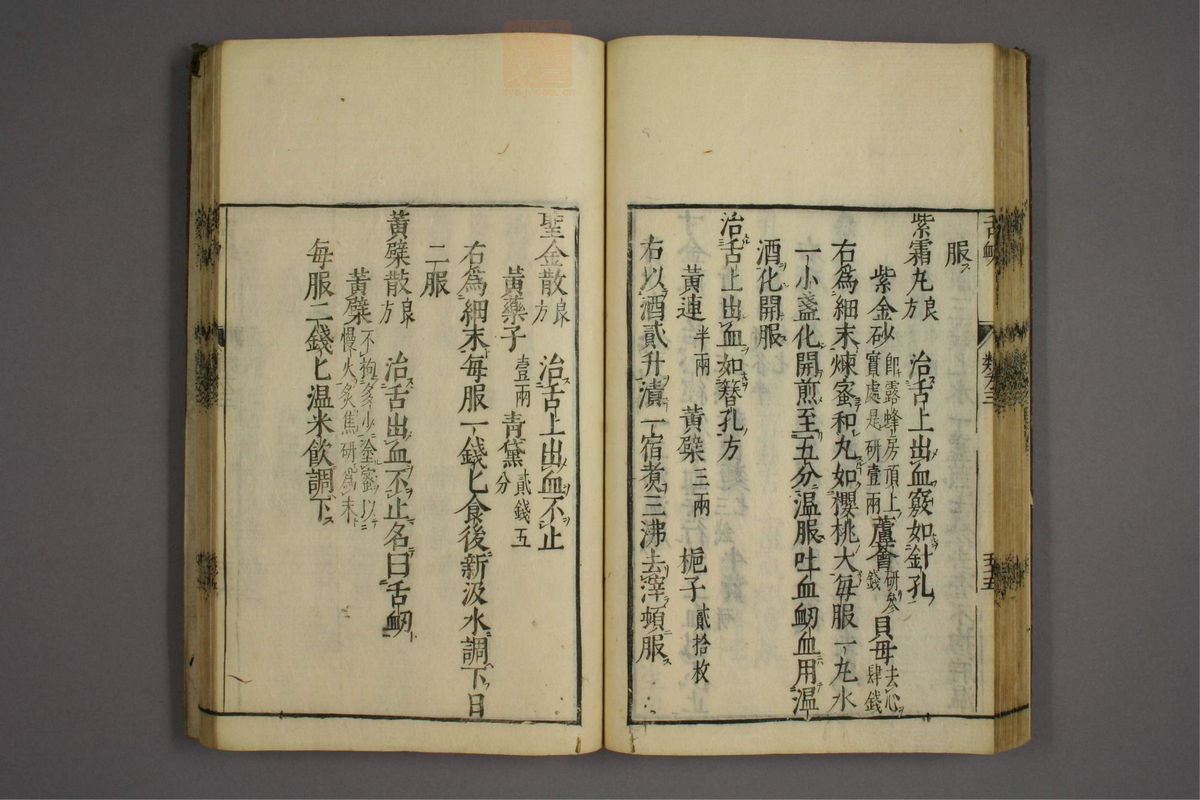 服
紫霜丸 良方 治舌上出血竅如針孔
紫金砂 即露蜂房頂上實處是研壹兩 蘆薈 研參錢 貝母 去心肆錢
右爲細末煉蜜和丸如櫻桃大每服一丸水
一小盞化開煎至五分温服吐血衂血用温
酒化開服
治舌上出血如簪孔方
黃連 半兩 黃檗 三兩 梔子 貳拾枚
右以酒貳升漬一宿煮三沸去滓頓服
聖金散 良方 治舌上出血不止
黃藥子 壹兩 青黛 貳錢五分
右爲細末每服一錢匕食後新汲水調下日
二服
黃檗散 良方 治舌出血不止名曰舌衂
黃檗 不拘多少塗蜜以慢火炙焦研爲末
每服二錢匕温米飲調下